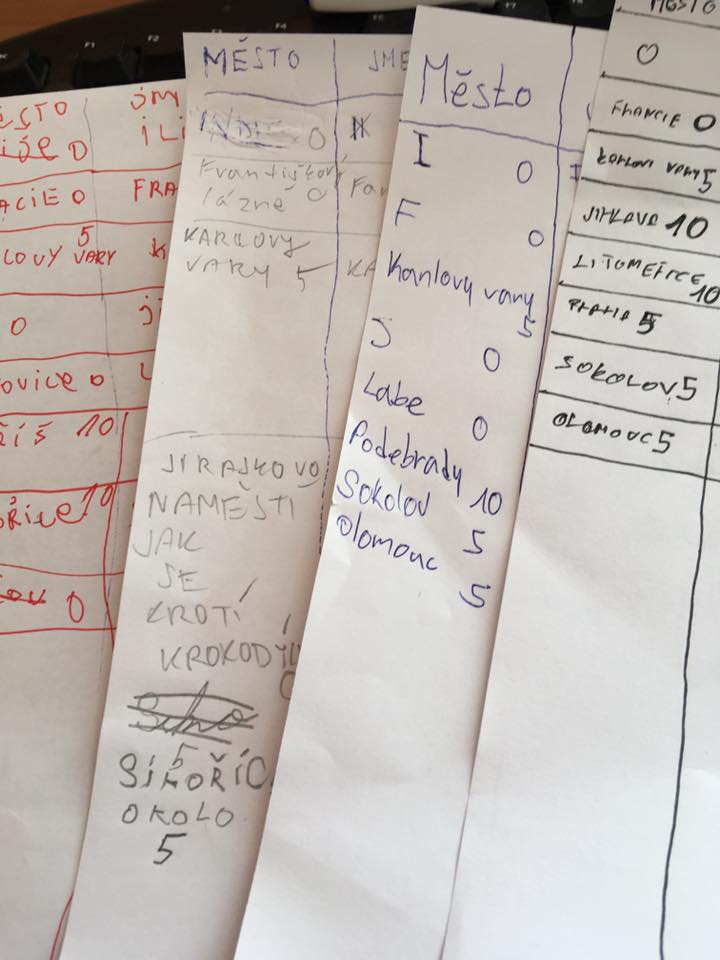 ĚSTO
jmy
ije 0
iLi
ACIE 0
FRA
5
LOVY VARY
K
0
ji
ovice 0
L
ŘÍŠ 10
ořice 10
0
MĚSTO
JMÉ
INDIE 0
Františkovy
Fan
lázne 0
KARLOVY
VARY 5
KA
JIRAJKOVO
NAMĚSTI
JAK
SE
KROTÍ
KROKODÝL
5
SIKOŘIC
OKOLO
5
Město
I
0
F
0
Karlovy vary
5
J
0
Labe
0
Podebrady 10
Sokolov
5
Olomouc
5
MĚSTO
0
FRANCIE 0
KARLOVI VARY 5
JIHLAVA 10
LITOMĚŘICE
10
5
SOKOLOV 5
OLOMOUC 5